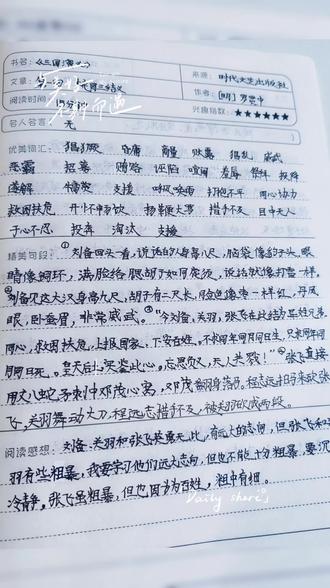 书名:《三国演义》
来源:时代文艺出版社
文章:第一回 桃园三结义
作者:[明]罗贯中
阅读时间:15分钟
兴趣指数:★★★★★★
名人名言:无
优美词汇:猖獗 商量 张嘉 猖乱 威武
恶霸 招募 贿赂 诬陷 喧闹 羞辱 禁料 投奔
薄解 愤怒 支援 呼风唤雨 打抱不平 同心协力
救困扶危 开怀畅饮 扬鞭大骂 措手不及 目中无人
于心不忍 投奔 淘汰 支援
精美句段:①刘备回头一看,说话的人身高八尺,脑袋像豹子头,眼
睛像铜环,满脸络腮胡子如同葵须,说话就像打雷一样。
②刘备见这大汉身高九尺,胡子有二尺长,脸色像枣一样红,丹凤
眼,卧蚕眉,非常威武。③“今刘备,关羽,张飞在此结为异姓兄弟
同心,救困扶危,上报国家,下安百姓,不求同年同月同日生,只求同年同
月同日死。皇天后土实鉴此心。忘恩负义,天人共戮!”④张飞直接
用丈八蛇矛刺中邓茂心窝,邓茂翻身落马,程远志冲马来砍张
飞,关羽舞动大刀,程远志措手不及,被关羽砍成两段。
阅读感想:刘备、关羽和张飞英勇无比,有远大的志向,但张飞和关
羽有些粗暴,我要学习他们远大志向,但也不能十分粗暴,要沉
冷静。张飞虽粗暴,但也因为为百姓,粗中有细。
Daily share